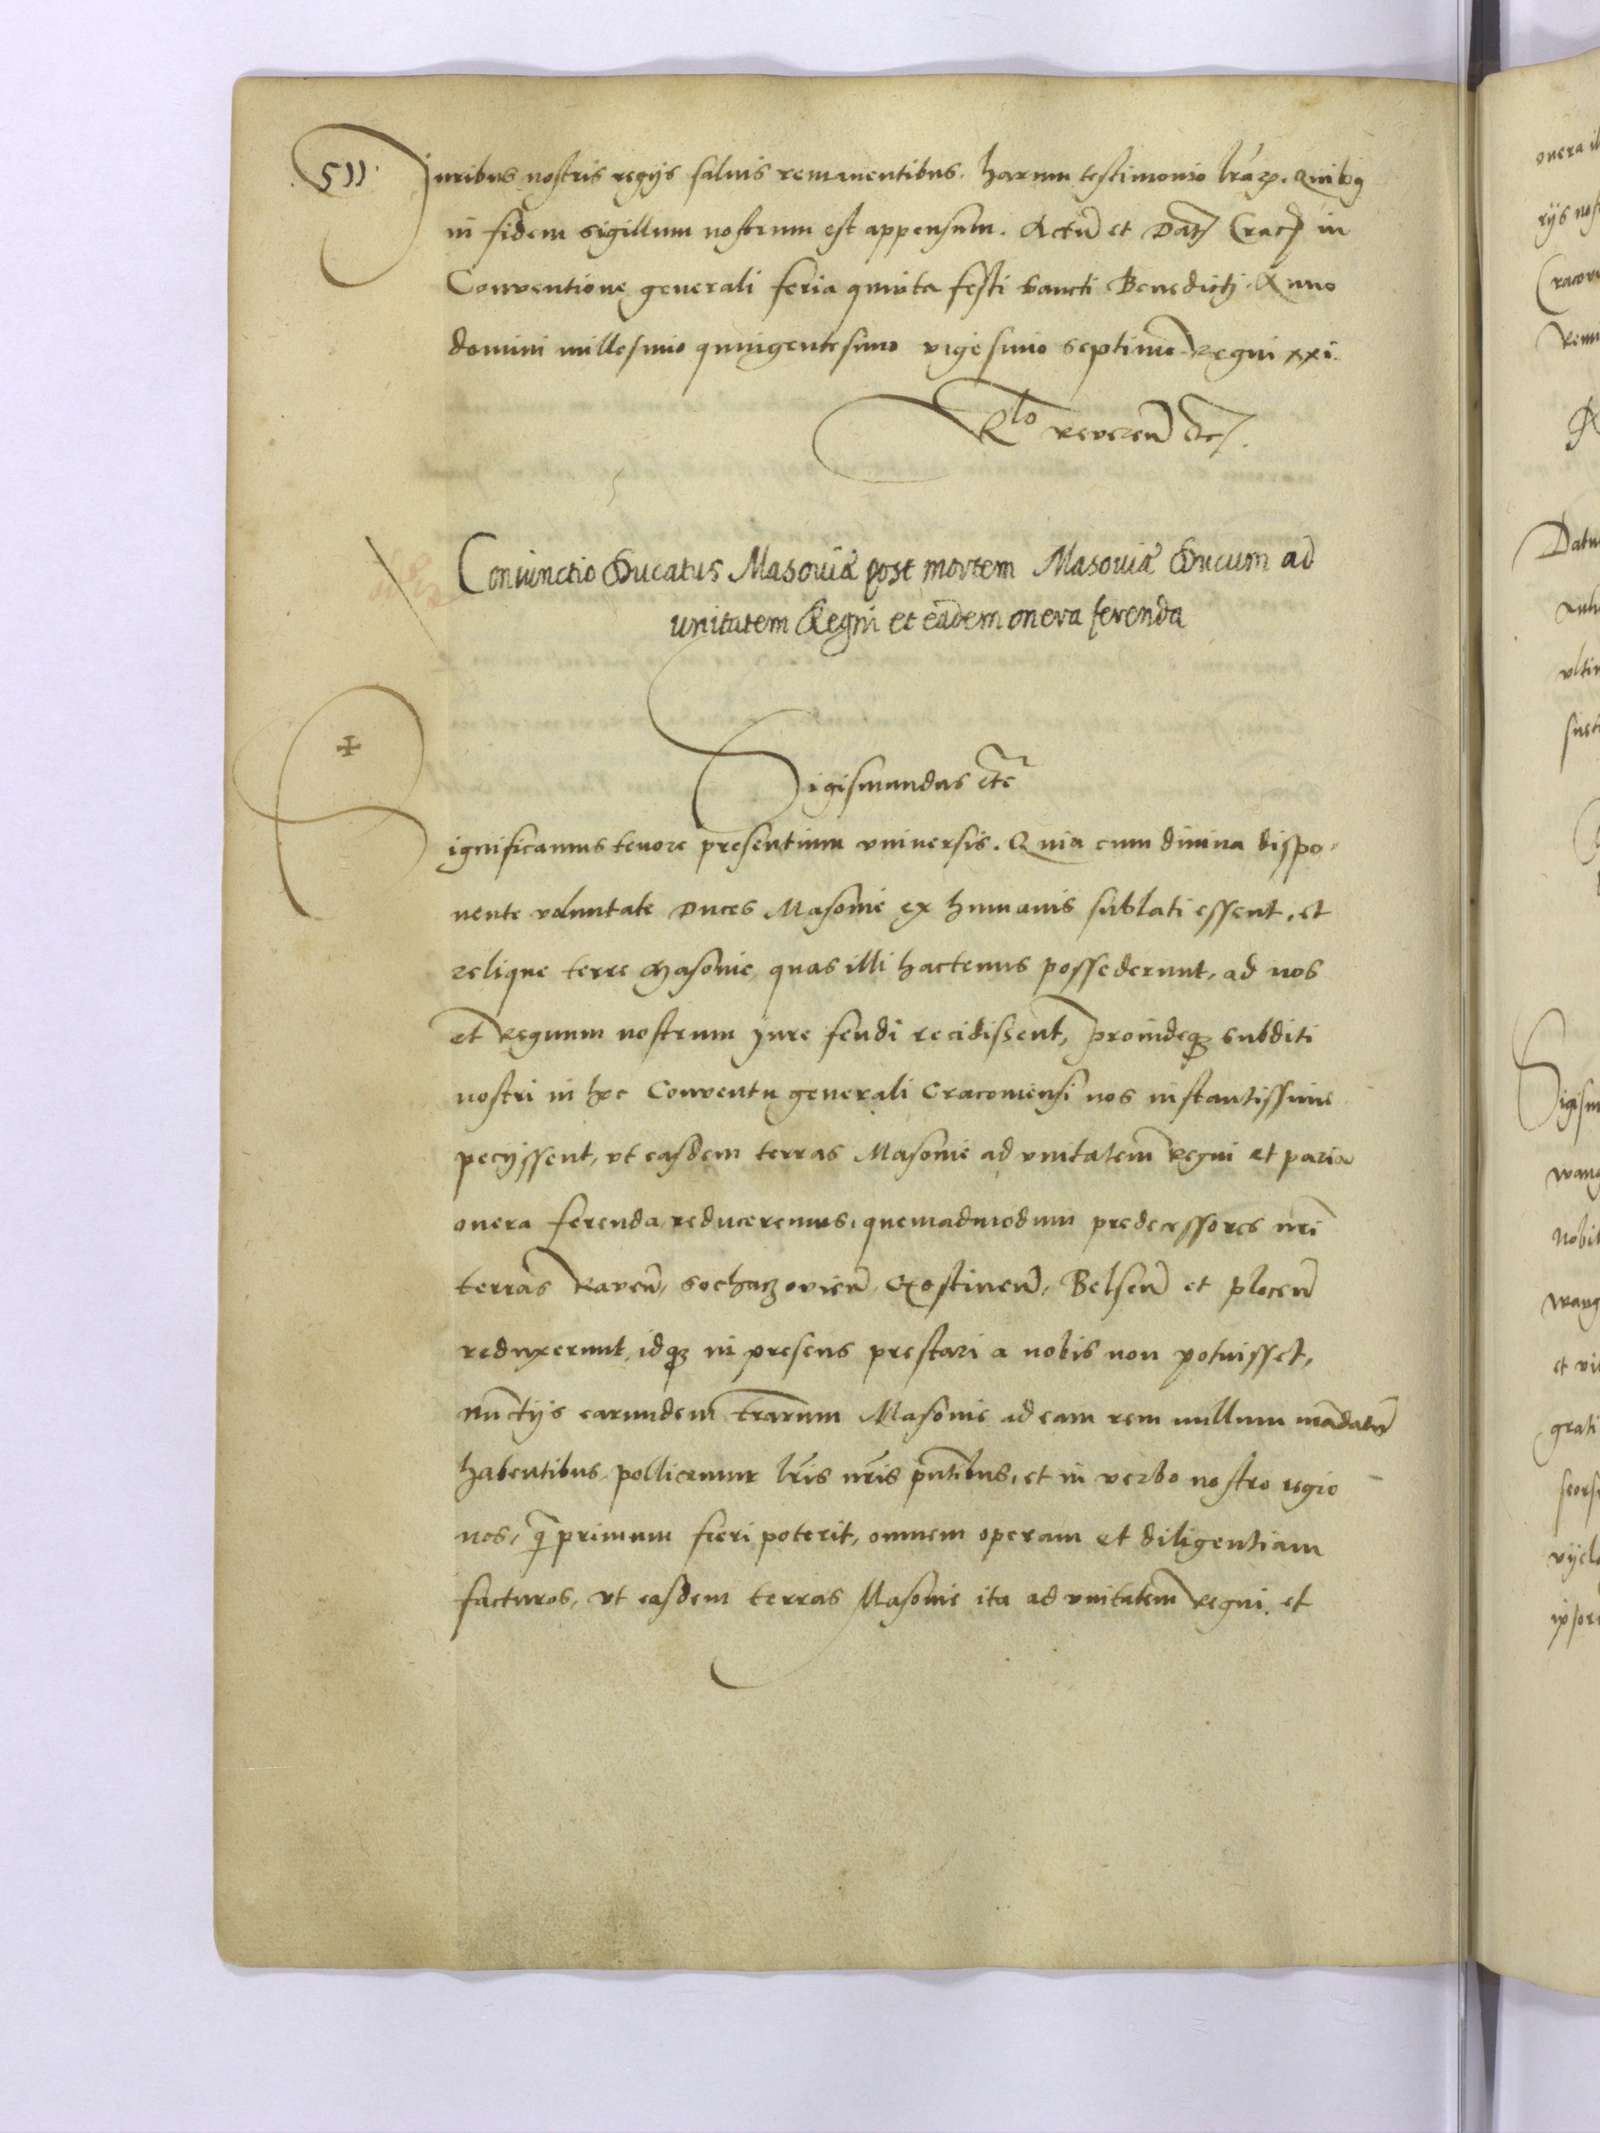 511
Juribus nostris regijs saluis remanentibus. harum testimonio lrarꝝ. Quibꝫ
in fidem sigillum nostrum est appensum. Actũ et Datꝭ Cracꝭ in
Conuentione generali feria quinta festi Sancti Benedictj. Anno
domini millesimo quingentesimo vigesimo septimo Regni xxi.
Rlo reueren̄ etc.
Coniunctio Ducatus Masouiæ post mortem Masouiæ Ducum ad
unitatem Regni et eadem onera ferenda
Sigismundus etc
Significamus tenore presentium vniuersis. Quia cum diuina dispo-
nente voluntate Duces Masouie ex humanis sublati essent, et
relique terre Masouie, quas illi hactenus possederunt, ad nos
et Regnum nostrum jure feudi recidissent, proindeqꝫ subditi
nostri in hoc Conuentu generali Cracouiensi nos instantissime
pecijssent, vt easdem terras Masouie ad vnitatem Regni et paria
onera ferenda reduceremus, quemadmodum predecessores nri
terras Rauen̄, Sochaczouien̄, Gostinen̄, Belsen̄ et plocen̄
reduxerunt, idqꝫ in presens prestari a nobis non potuisset,
nunctijs earundem trarum Masouie ad eam rem nullum mãdatũ
habentibus, pollicemur lris nris pñtibus, et in verbo nostro regio
nos, q̃ primum fieri poterit, omnem operam et diligentiam
facturos, vt easdem terras Masouie ita ad vnitatem Regni et